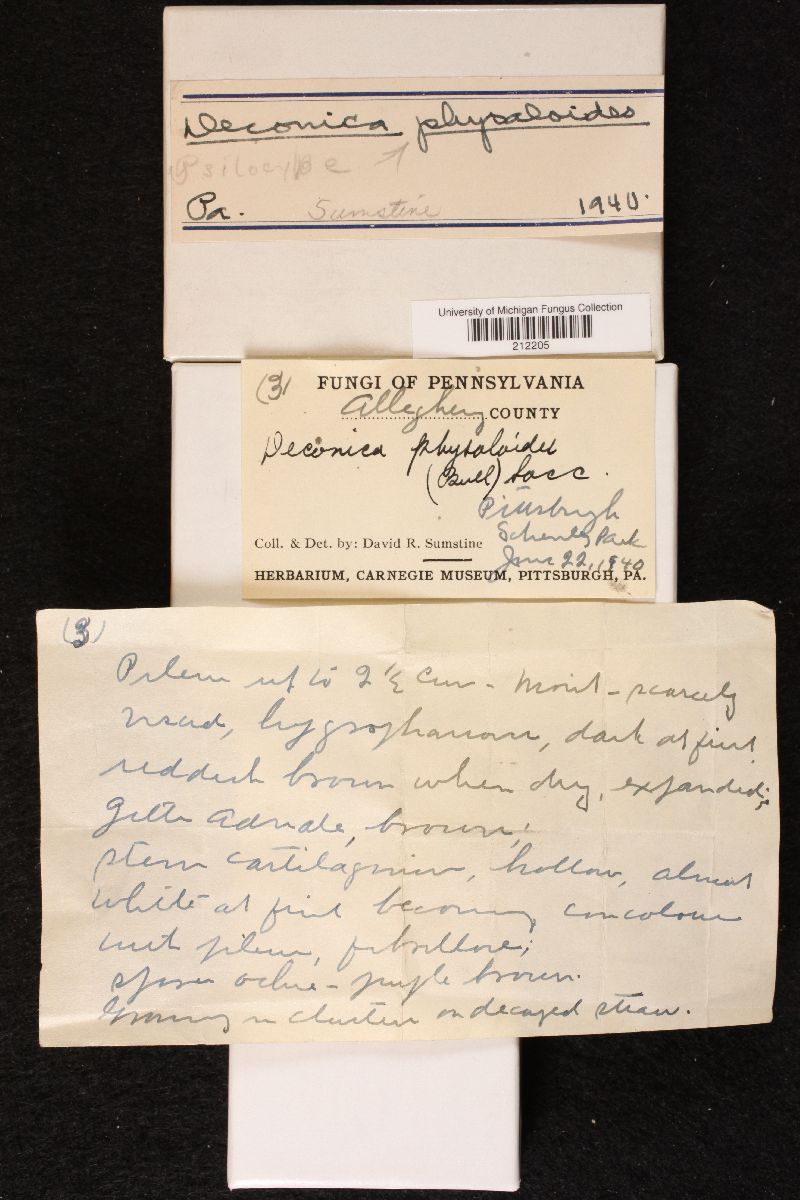 Deconica physaloides
Psilocybe
Pa. Sumstine 1940.
University of Michigan Fungus Collection
212205
(3) FUNGI OF PENNSYLVANIA
Allegheny COUNTY
Deconica physaloides
(Bull) Sacc.
Pittsburgh
Schenley Park
Coll. & Det. by: David R. Sumstine
June 22, 1940
HERBARIUM, CARNEGIE MUSEUM, PITTSBURGH, PA.
(3)
Pileus up to 2 1/2 cm - moist - scarcely
viscid, hygrophanous, dark at first
reddish brown when dry, expanded;
Gills adnate, brown;
stem cartilaginous, hollow, almost
white at first becoming concolorous
with pileus, fibrillose;
spores ochre - purple brown.
Growing in clusters on decayed straw.